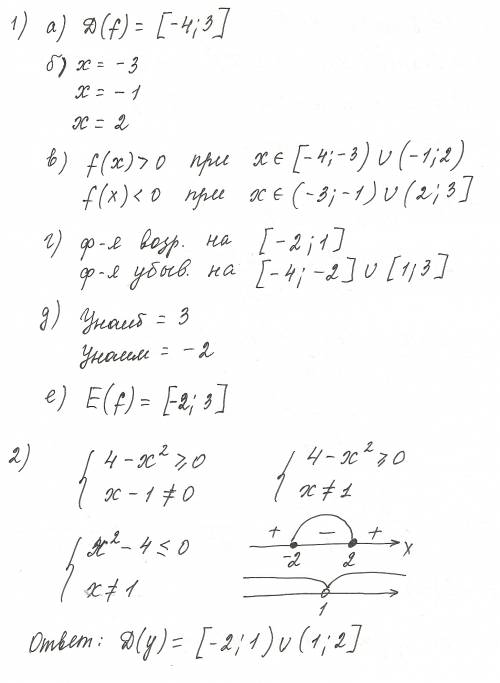 1) а) D(f) = [-4; 3]
б) x = -3
x = -1
x = 2
в) f(x) > 0 при x ∈ [-4; -3) ∪ (-1; 2)
f(x) < 0 при x ∈ (-3; -1) ∪ (2; 3]
г) ф-я возр. на [-2; 1]
ф-я убыв. на [-4; -2] ∪ [1; 3]
д) Унаиб = 3
Унаим = -2
е) E(f) = [-2; 3]
2) { 4 - x² ⩾ 0 { 4 - x² ⩾ 0
x - 1 ≠ 0 x ≠ 1
{ x² - 4 ≤ 0 + - +
x ≠ 1 -2 2 x
1
Ответ: D(y) = [-2; 1) ∪ (1; 2]